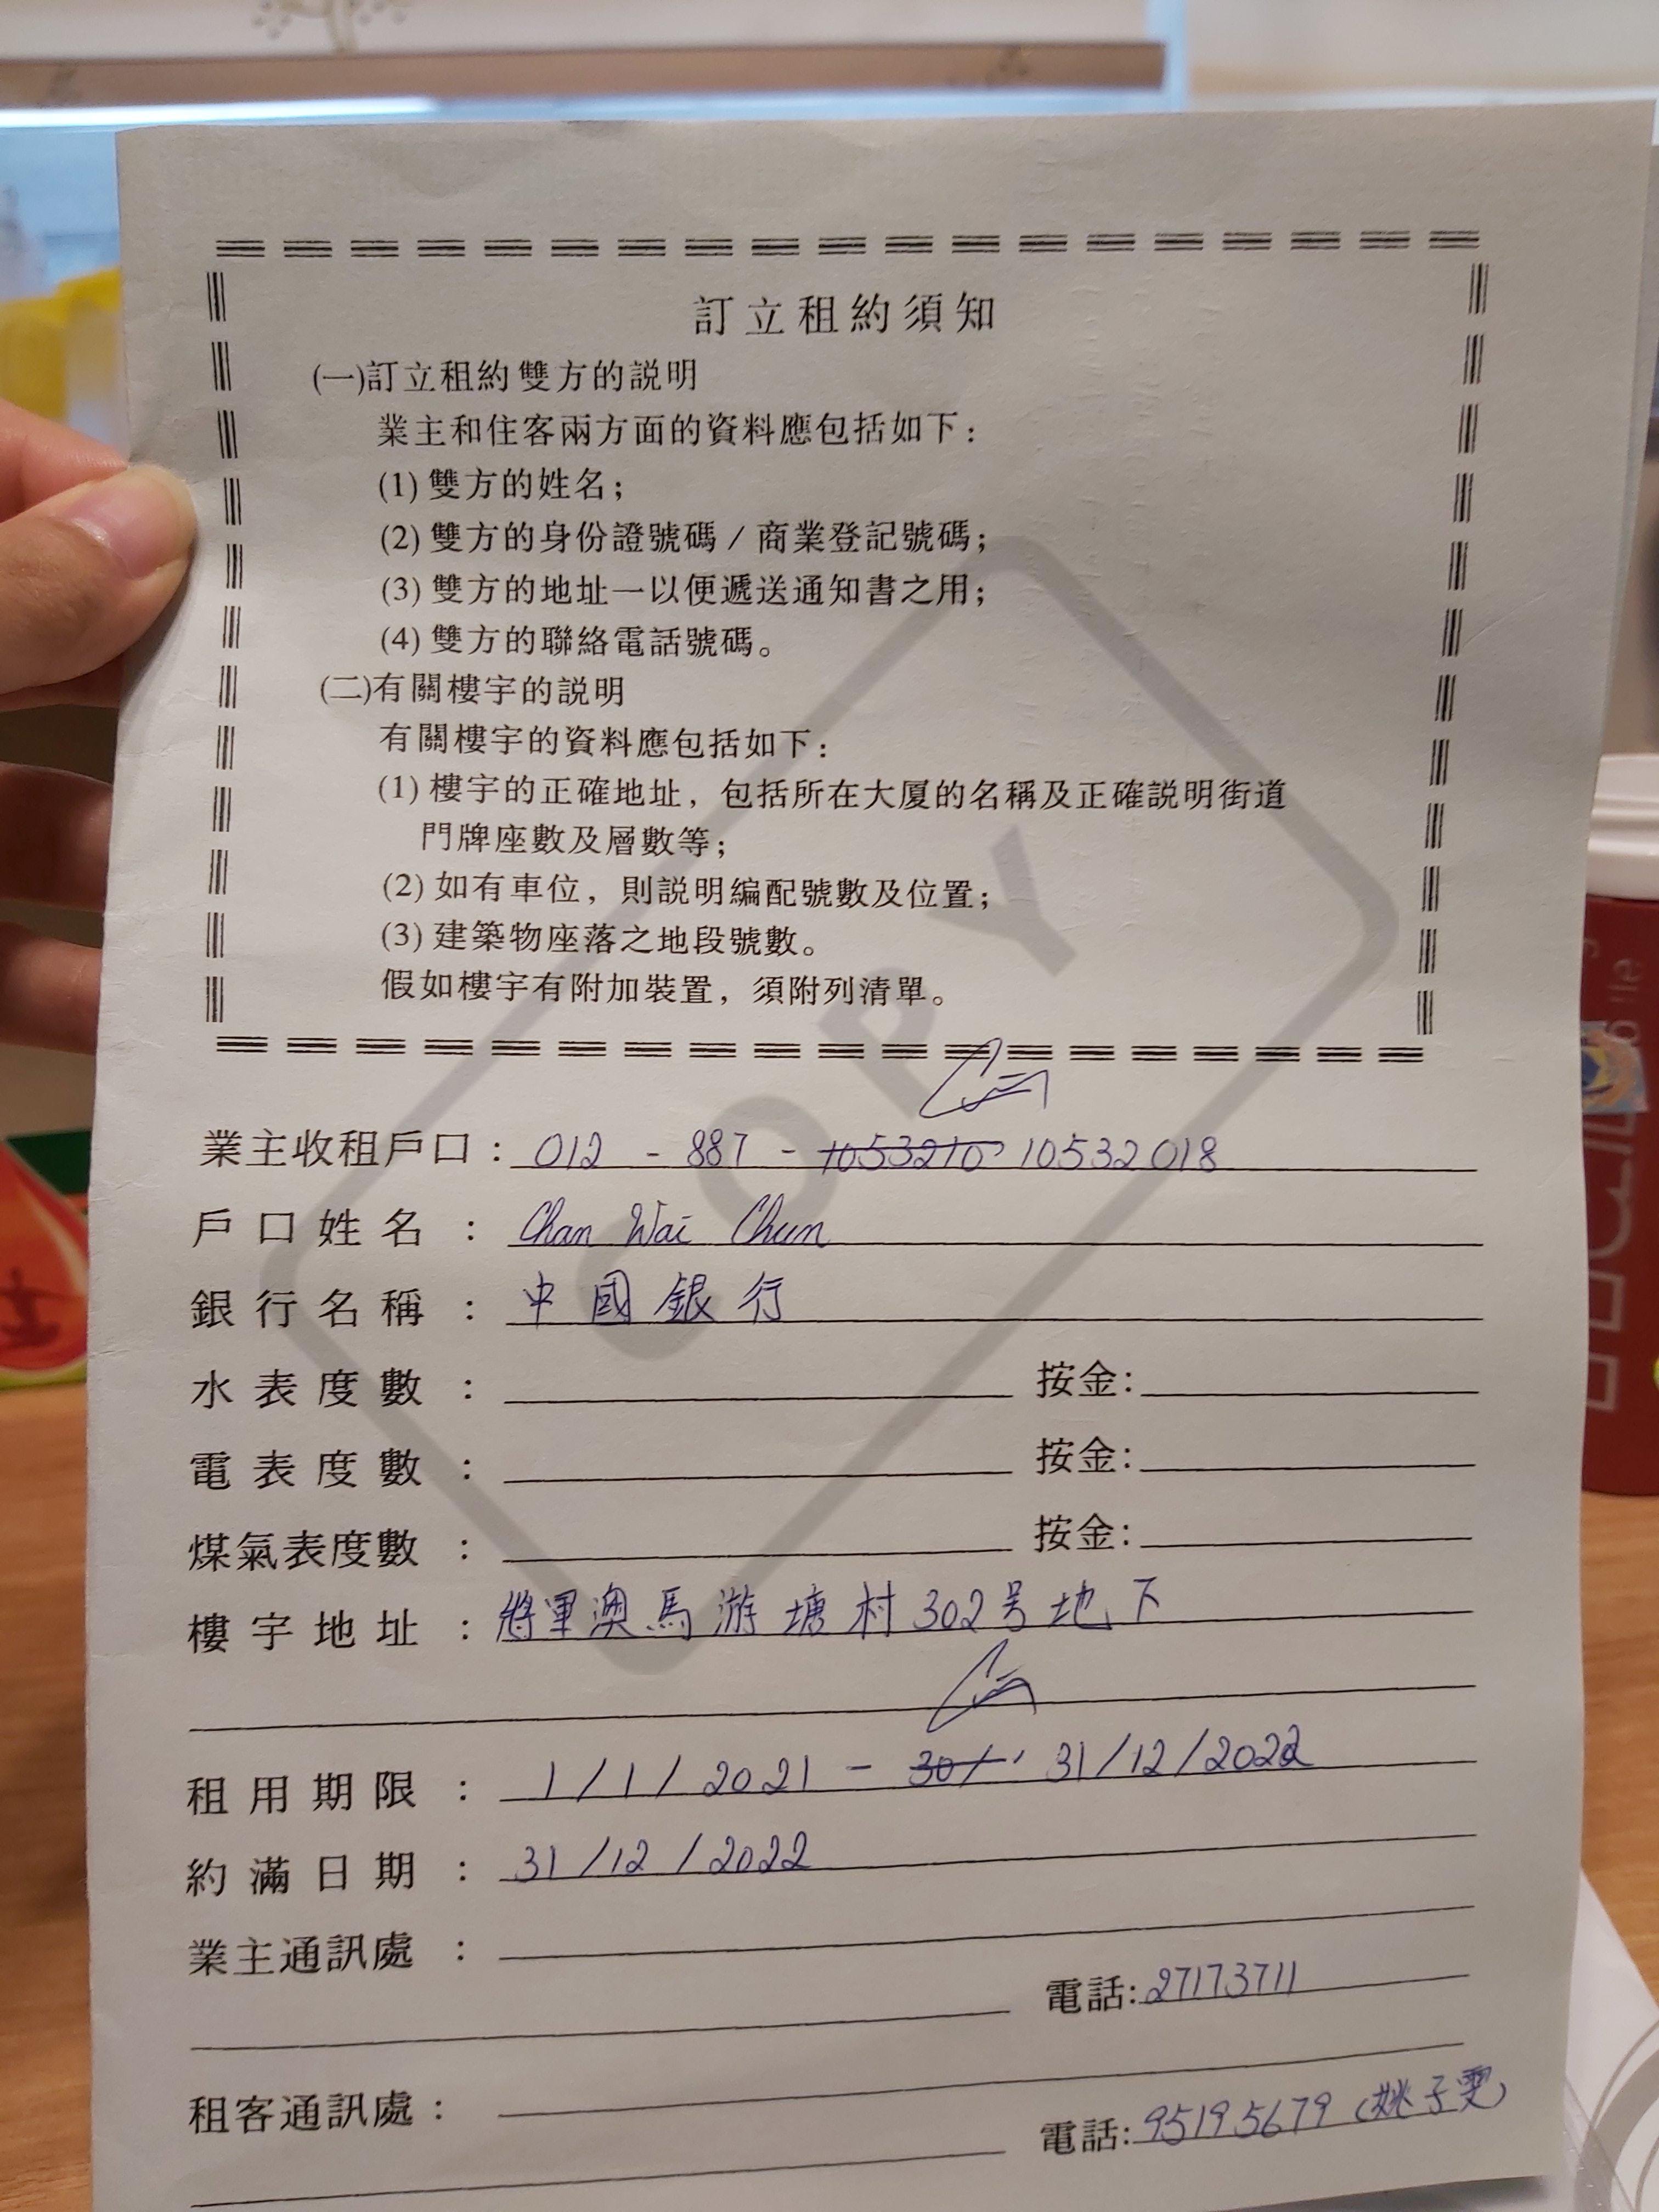 訂立租約須知
(一)訂立租約雙方的説明
業主和住客兩方面的資料應包括如下：
(1) 雙方的姓名；
(2) 雙方的身份證號碼 / 商業登記號碼；
(3) 雙方的地址一以便遞送通知書之用；
(4) 雙方的聯絡電話號碼。
(二)有關樓宇的説明
有關樓宇的資料應包括如下：
(1) 樓宇的正確地址，包括所在大厦的名稱及正確説明街道
門牌座數及層數等；
(2) 如有車位，則説明編配號數及位置；
(3) 建築物座落之地段號數。
假如樓宇有附加裝置，須附列清單。
COPY
業主收租戶口：012 - 887 - 1053210 10532018
戶口姓名：Chan Wai Chun
銀行名稱：中國銀行
水表度數： 按金：
電表度數： 按金：
煤氣表度數： 按金：
樓宇地址：將軍澳馬游塘村302号地下
租用期限：1/1/2021 - 30/ 31/12/2022
約滿日期：31/12/2022
業主通訊處：
電話：27173711
租客通訊處：
電話：95195679 (姚子雯)